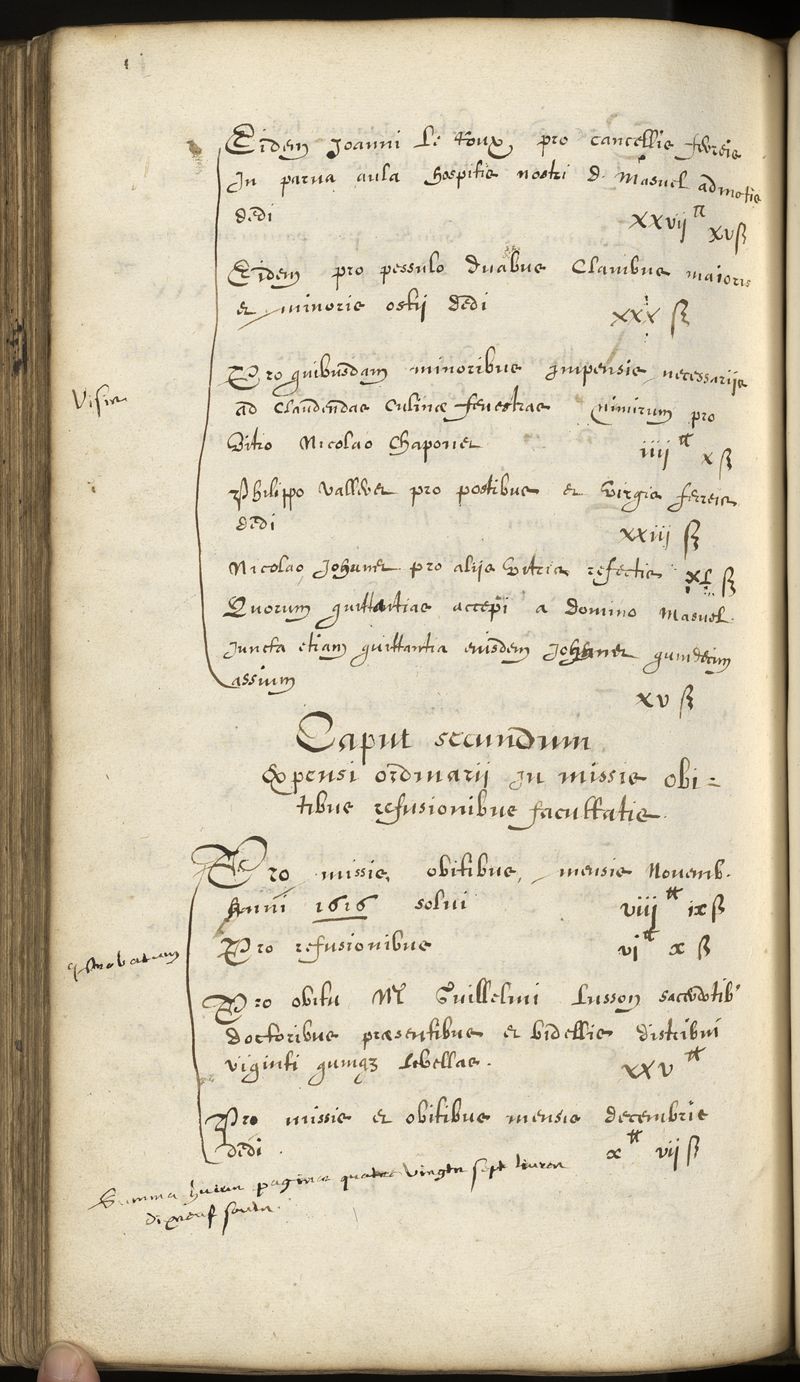 Eidem Joanni Le Roux pro cancellis ferreis
In parva aula hospitis nostri d. Masuel admotis
dedi xxvii tt xv ß
Eidem pro pessulo duabus clavibus maioris
et minoris ostij dedi xxx ß
Visa
Pro quibusdam minoribus impensis necessarijs
ad claudendas culinæ fenestras nimirum pro
vitro Nicolao Chaponet iiij tt x ß
Philippo Vallevet pro postibus et virgis ferreis
dedi xxiij ß
Nicolao Johannet pro alijs vitris refectis xl ß
Quorum quittantias accepi a domino Masuel
Juncta etiam quittantia eiusdem Johannet quindecim
assium xv ß
Caput secundum
Expensi ordinarii in missis obi=
tibus refusionibus facultatis.
Pro missis, obitibus, mensis Novemb.
Anni 1616 solui viij tt ix ß
Pro refusionibus vj tt x ß
Pro obitu M. Guillelmi Lusson sacerdotib'
doctoribus præsentibus et bidellis distribui
viginti quinqz libellas. xxv tt
Pro missis et obitibus mensis decembris
dedi. x tt vij ß
Summa huius paginæ quatre vingtz sept livres
dixneuf soulz.